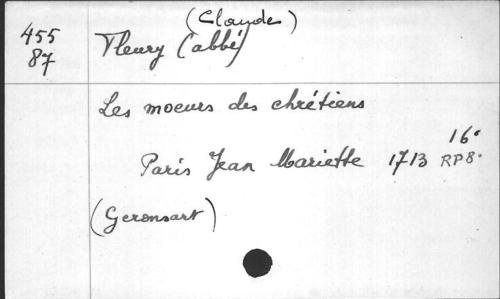 (Claude)
455 Fleury (abbé)
87
Les moeurs des chrétiens
16°
Paris Jean Mariette 1713 RP8°
(Geronsart)